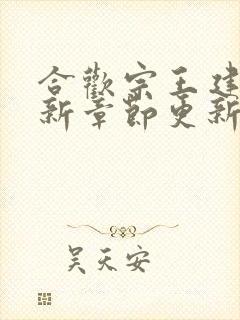 合歡宗王建
新章節更新
吴天安